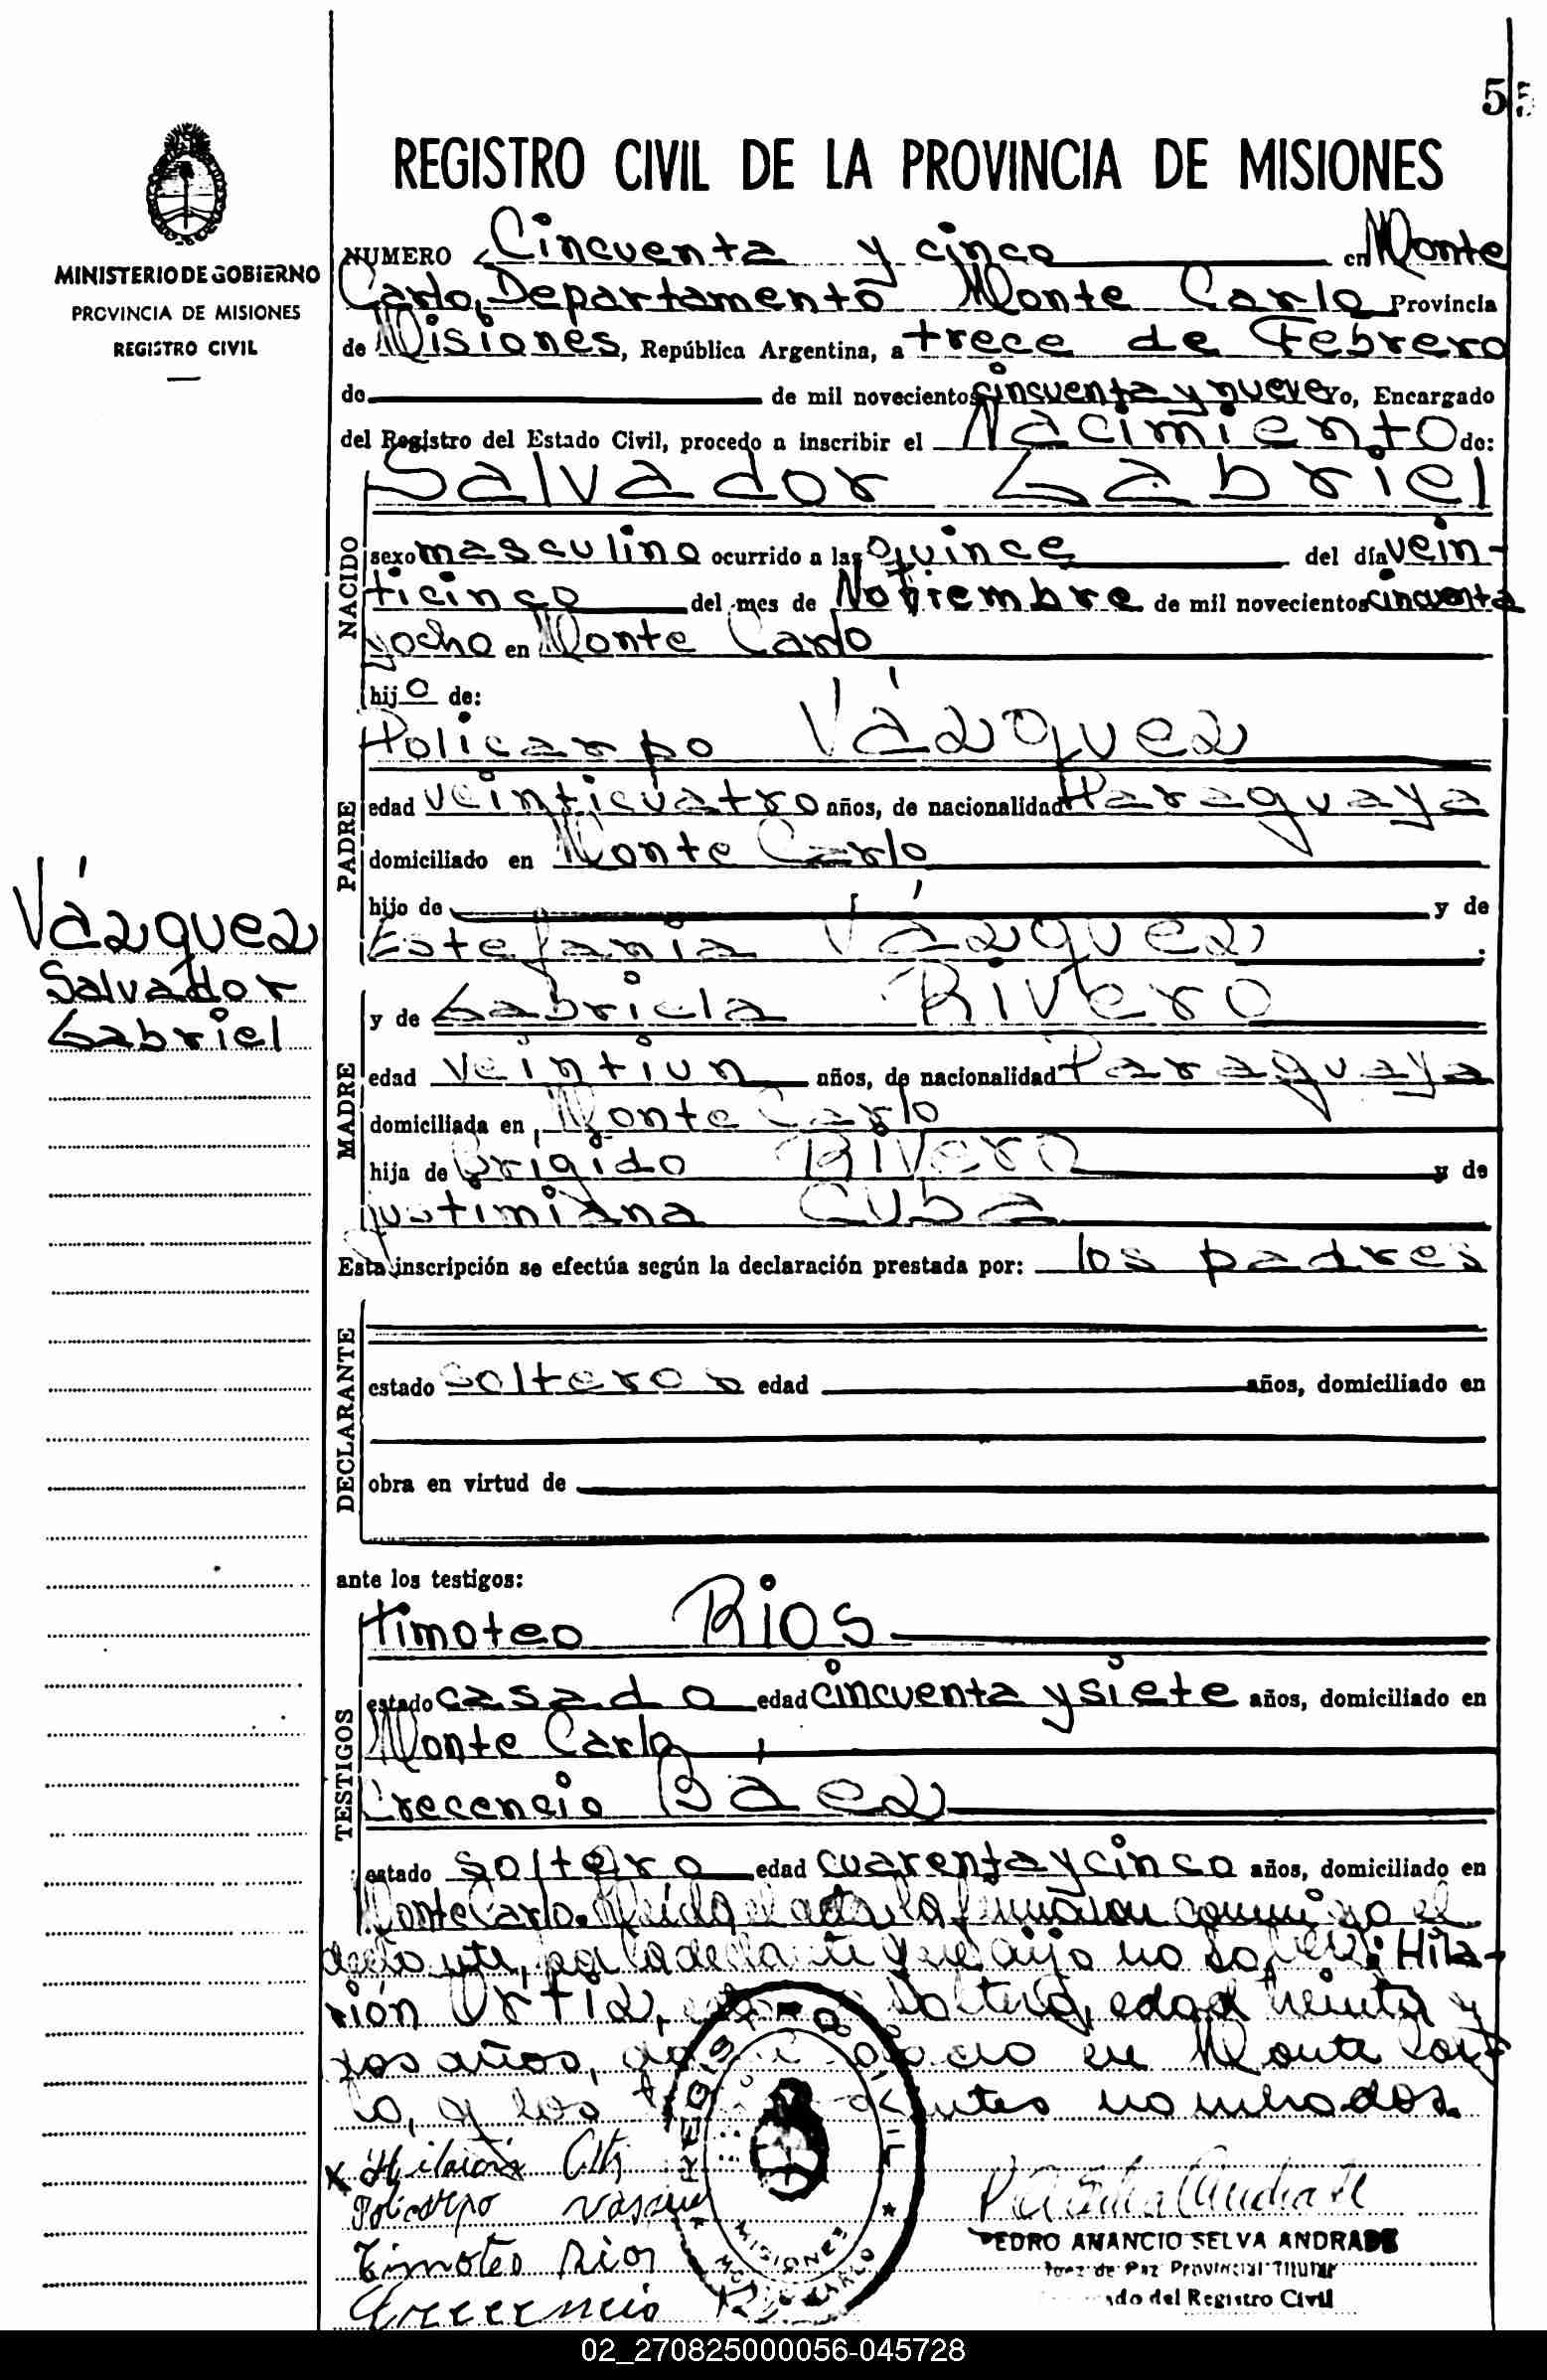 55
MINISTERIO DE GOBIERNO
PROVINCIA DE MISIONES
REGISTRO CIVIL
REGISTRO CIVIL DE LA PROVINCIA DE MISIONES
NUMERO Cincuenta y cinco en Monte
Carlo, Departamento Monte Carlo Provincia
de Misiones, República Argentina, a trece de Febrero
de de mil novecientos cincuenta y nueve yo, Encargado
del Registro del Estado Civil, procedo a inscribir el Nacimiento de:
Salvador Gabriel
NACIDO
sexo masculino ocurrido a las quince del día vein-
ticinco del mes de Nobiembre de mil novecientos cincuenta
yocho en Monte Carlo
hijo de:
PADRE
Policarpo Vázquez
edad veinticuatro años, de nacionalidad Paraguaya
domiciliado en Monte Carlo
hijo de y de
Estefania Vázquez
Vázquez
Salvador
Gabriel
MADRE
y de Gabriela Rivero
edad veintiun años, de nacionalidad Paraguaya
domiciliada en Monte Carlo
hija de Brígido Rivero y de
Justimiana Cuba
Esta inscripción se efectúa según la declaración prestada por: los padres
DECLARANTE
estado solteros edad años, domiciliado en
obra en virtud de
ante los testigos:
TESTIGOS
Timoteo Rios
estado casado edad cincuenta y siete años, domiciliado en
Monte Carlo
Crecencio Báez
estado soltero edad cuarenta y cinco años, domiciliado en
Monte Carlo. Leída el acta la firmaron conmigo el
por la que dijo no saber: Hila-
rión Ortiz, soltero, edad treinta y
dos años, en Monte Car-
lo, y los nombrados.
Hilarion
Policarpo
Timoteo Rios
Crecencio
REGISTRO CIVIL
MISIONES
MONTE CARLO
PEDRO AMANCIO SELVA ANDRADE
Juez de Paz Provincial Titular
del Registro Civil
02_270825000056-045728